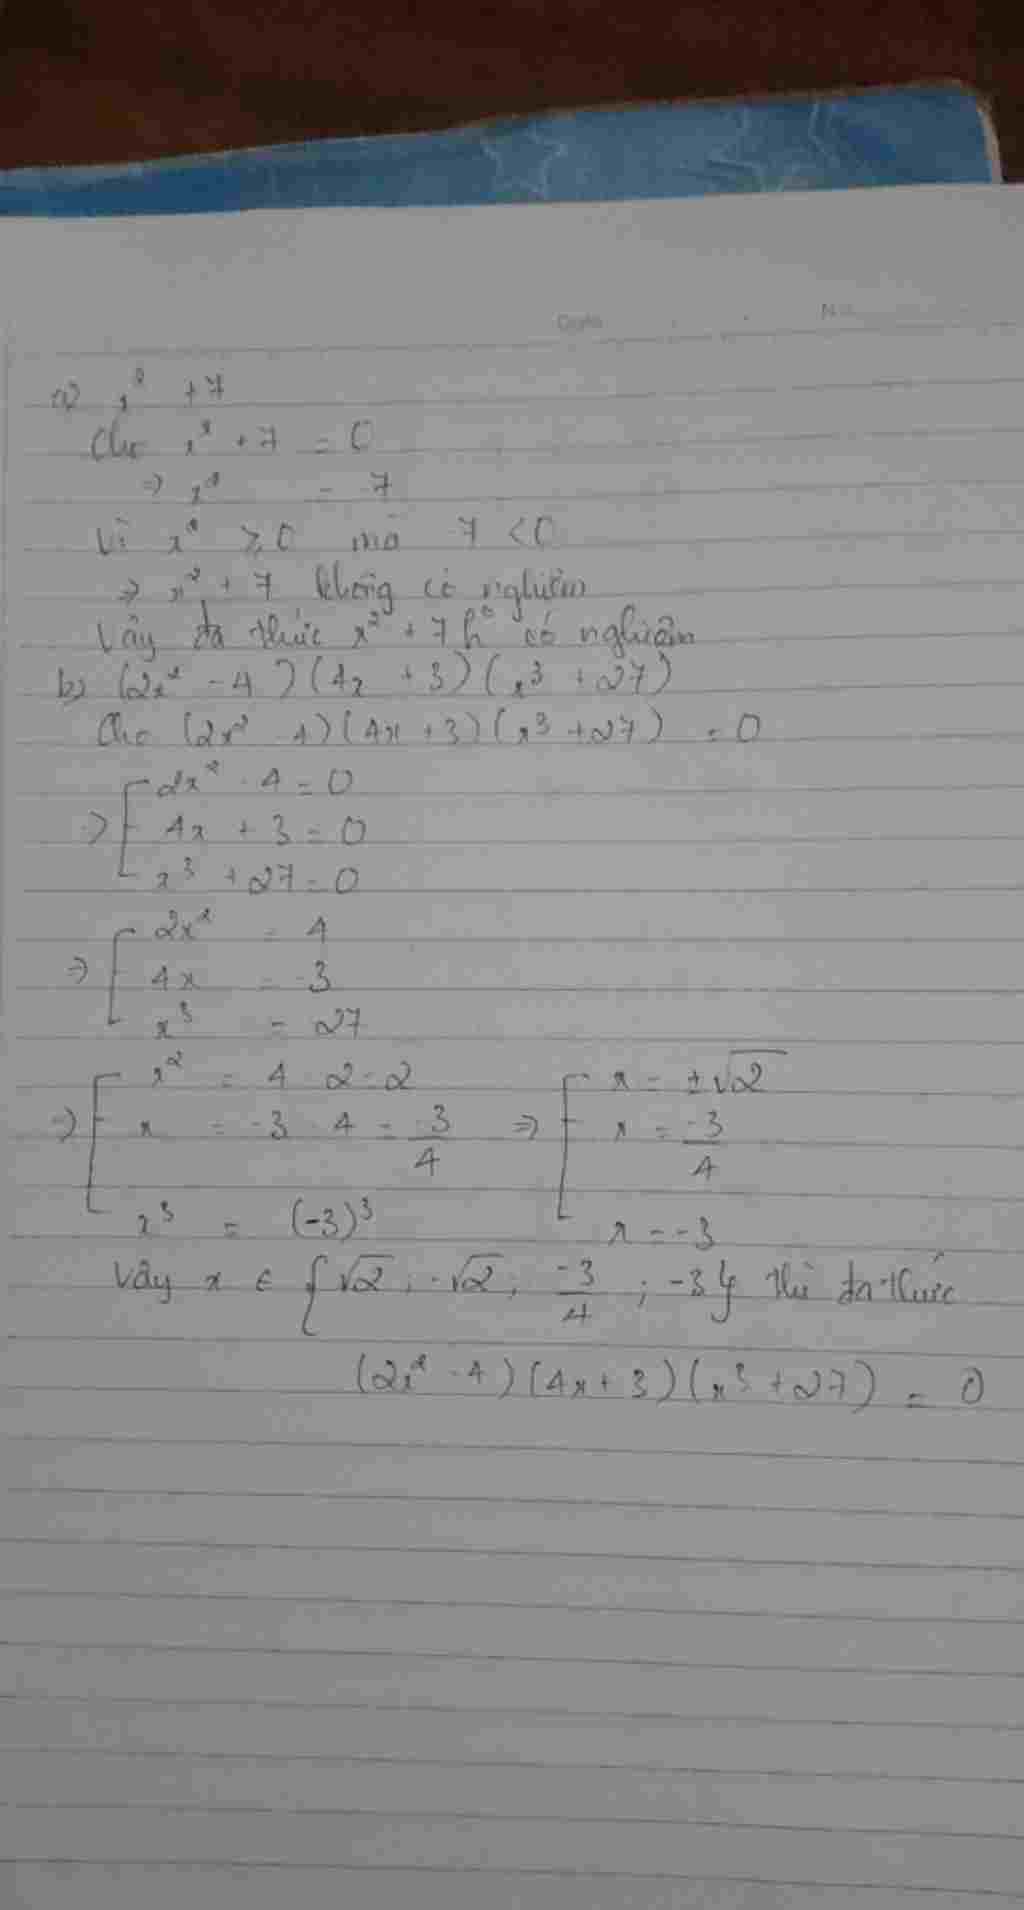 Date No
a) x² + 7
Cho x² + 7 = 0
⇒ x² = 7
Vì x² ≥ 0 mà 7 < 0
⇒ x² + 7 không có nghiệm
Vậy đa thức x² + 7 k° có nghiệm
b) (2x² - 4)(4x + 3)(x³ + 27)
Cho (2x² 4)(4x + 3)(x³ + 27) = 0
⇒ [ 2x² - 4 = 0
4x + 3 = 0
x³ + 27 = 0
⇒ [ 2x² = 4
4x = -3
x³ = 27
⇒ [ x² = 4 2 = 2 ⇒ [ x = ±√2
x = -3 4 = -3/4 x = -3/4
x³ = (-3)³ x = -3
Vậy x ∈ {√2 ; -√2 ; -3/4 ; -3} thì đa thức
(2x² - 4)(4x + 3)(x³ + 27) = 0